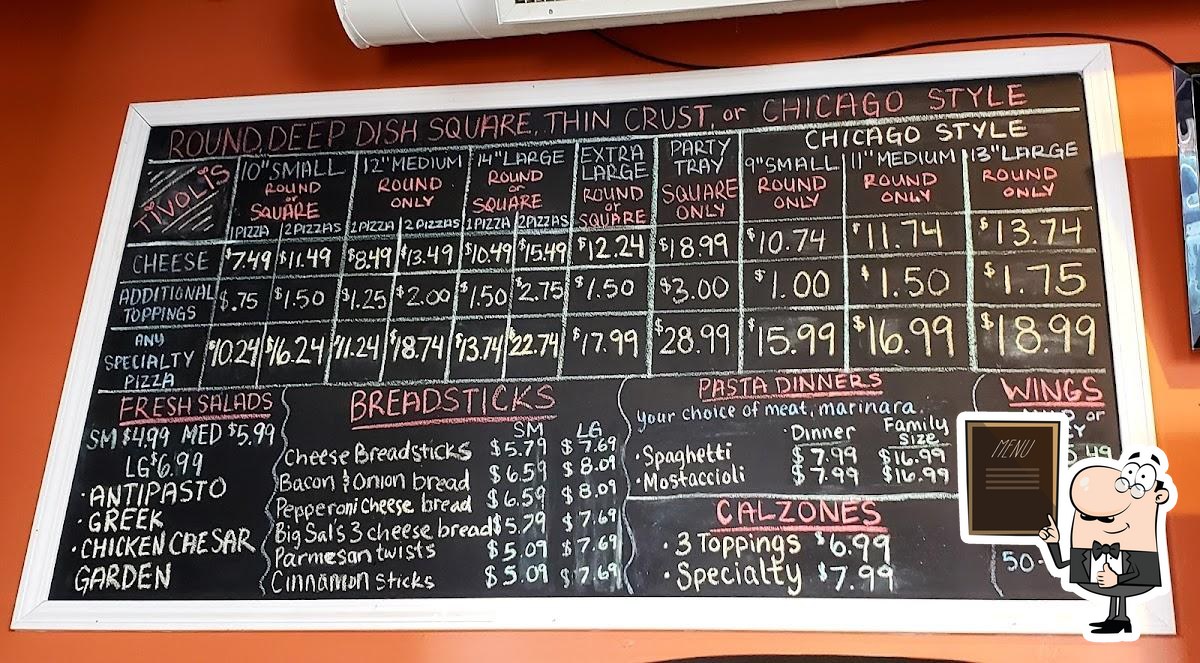 ROUND, DEEP DISH SQUARE, THIN CRUST, or CHICAGO STYLE
CHICAGO STYLE
TIVOLIS
10" SMALL ROUND or SQUARE
12" MEDIUM ROUND ONLY
14" LARGE ROUND or SQUARE
EXTRA LARGE ROUND or SQUARE
PARTY TRAY SQUARE ONLY
9" SMALL ROUND ONLY
11" MEDIUM ROUND ONLY
13" LARGE ROUND ONLY
1 PIZZA 2 PIZZAS 1 PIZZA 2 PIZZAS 1 PIZZA 2 PIZZAS
CHEESE $7.49 $11.49 $8.49 $13.49 $10.49 $15.49 $12.24 $18.99 $10.74 $11.74 $13.74
ADDITIONAL TOPPINGS $.75 $1.50 $1.25 $2.00 $1.50 $2.75 $1.50 $3.00 $1.00 $1.50 $1.75
ANY SPECIALTY PIZZA $10.24 $16.24 $11.24 $18.74 $13.74 $22.74 $17.99 $28.99 $15.99 $16.99 $18.99
FRESH SALADS
SM $4.99 MED $5.99
LG $6.99
·ANTIPASTO
·GREEK
·CHICKEN CAESAR
GARDEN
BREADSTICKS
SM LG
Cheese Breadsticks $5.79 $7.69
Bacon & Onion bread $6.59 $8.09
Pepperoni Cheese bread $6.59 $8.09
Big Sal's 3 cheese bread $5.79 $7.69
Parmesan twists $5.09 $7.69
Cinnamon sticks $5.09 $7.69
PASTA DINNERS
Your choice of meat, marinara.
Dinner Family Size
·Spaghetti $7.99 $16.99
·Mostaccioli $7.99 $16.99
CALZONES
·3 Toppings $6.99
·Specialty $7.99
WINGS
or
MENU
50-